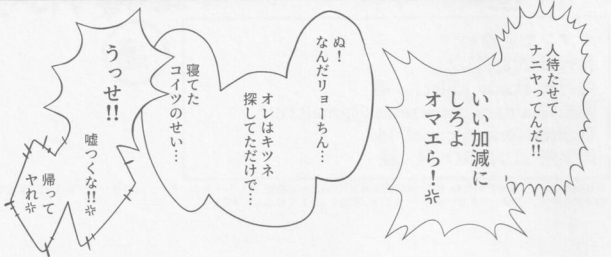 人待たせて
ナニヤってんだ!!
いい加減に
しろよ
オマエら!💢
ぬ!
なんだリョーちん…
オレはキツネ
探してただけで…
寝てた
コイツのせい…
うっせ!!
嘘つくな!!💢
帰って
ヤれ💢